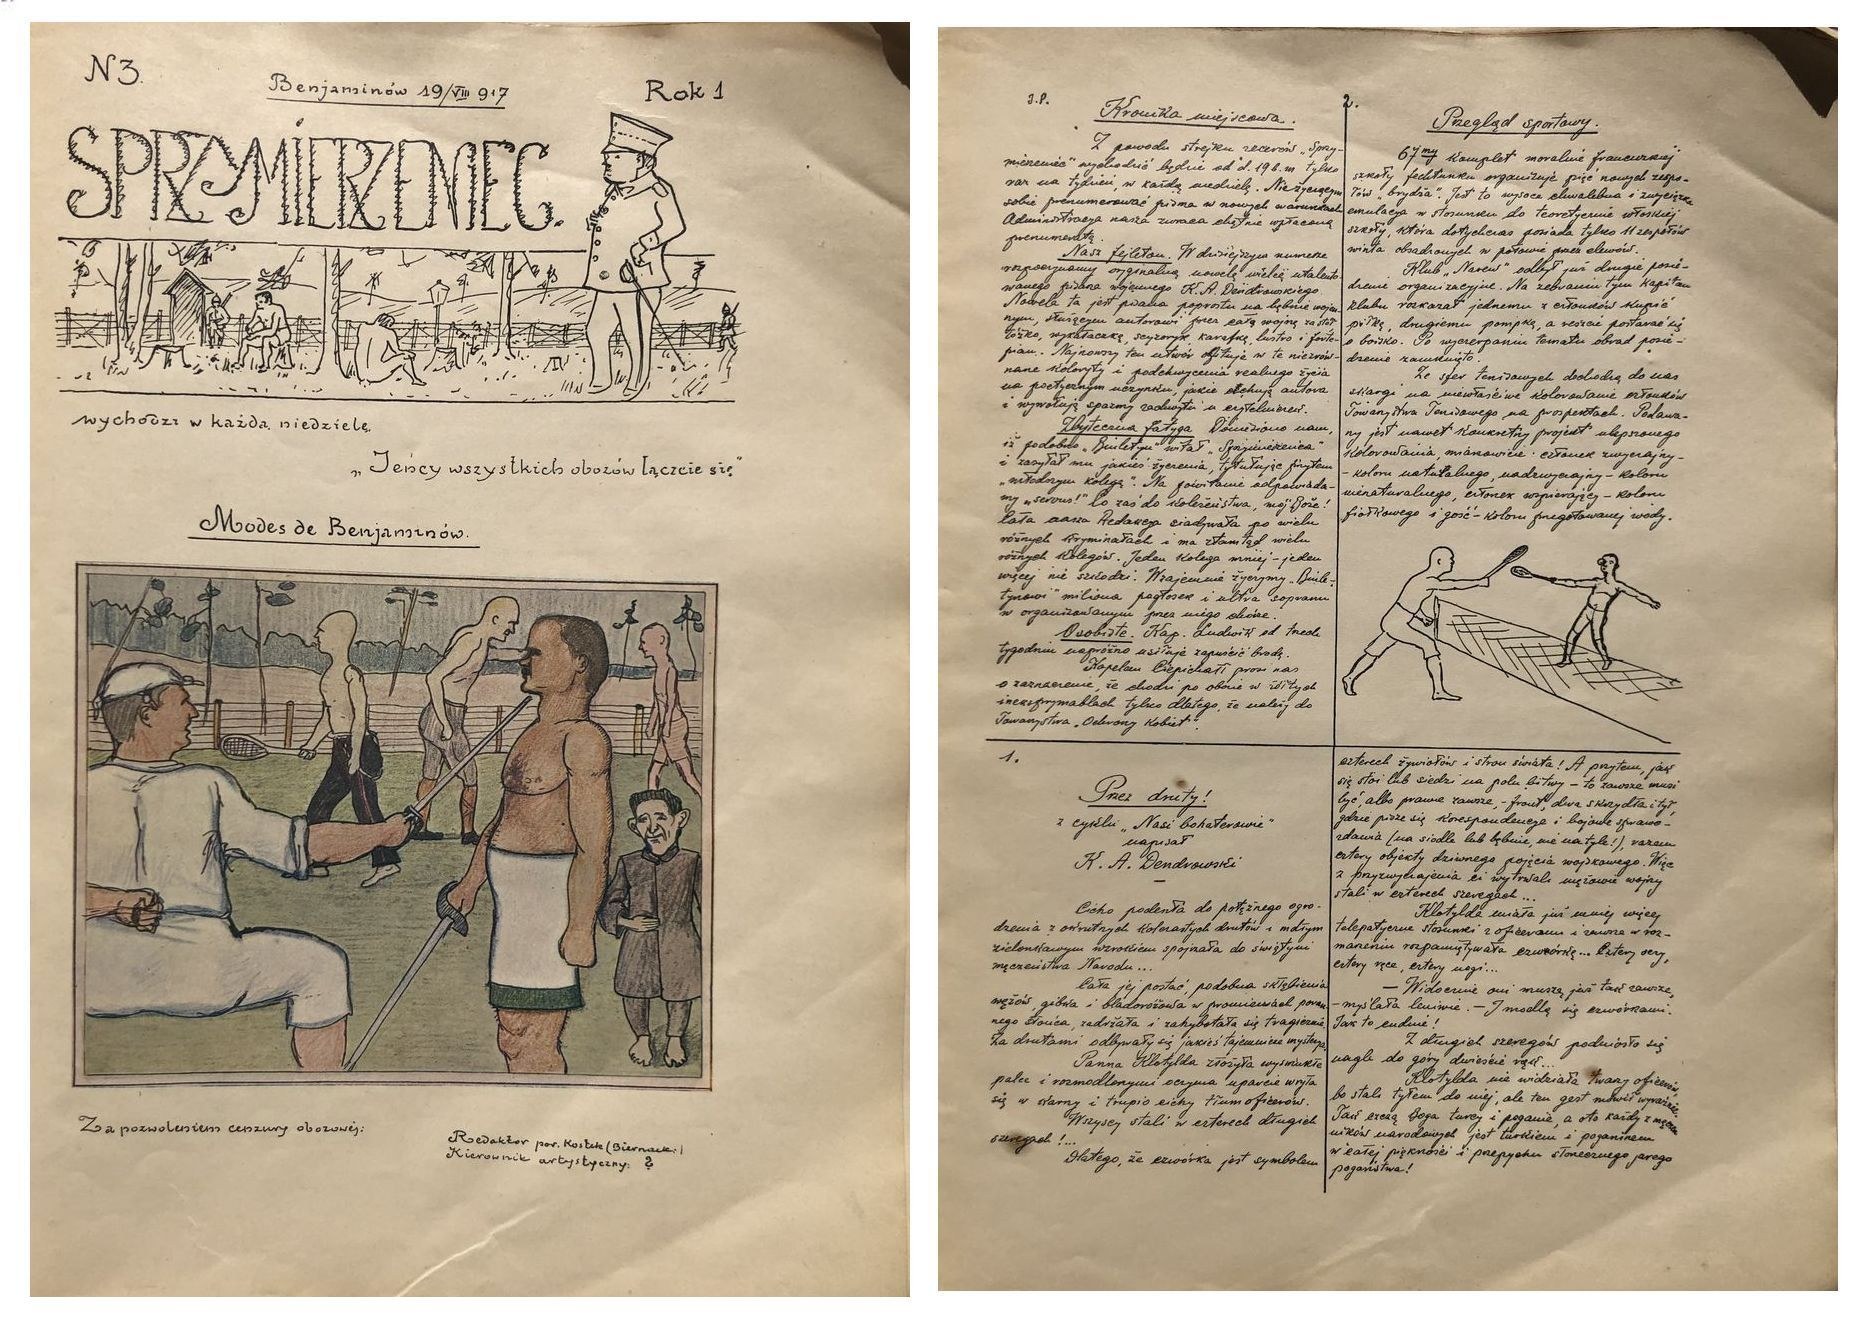 N3.
Benjaminów 19/VIII 917
Rok 1
SPRZYMIERZENIEC.
wychodzi w każdą niedzielę.
„Jeńcy wszystkich obozów łączcie się"
Modes de Benjaminów.
Za pozwoleniem cenzury obozowej:
Redaktor por. Kostek (Biernacki)
Kierownik artystyczny: ?
2.
Kronika miejscowa.
Z powodu strejku zecerów „Sprzy-
mierzeniec" wychodzić będzie od d. 19 b.m tylko
raz na tydzień, w każdą niedzielę. Nie życzącym
sobie prenumerować pisma w nowych warunkach
Administracja nasza zwraca chętnie wpłaconą
prenumeratę.
Nasz fejleton. W dzisiejszym numerze
rozpoczynamy oryginalną nowelę wielce utalento-
wanego pisarza wojennego K. A. Dendrowskiego.
Nowela ta jest pisana poprostu na bębnie wojen-
nym, służącym autorowi przez całą wojnę za stół
łóżko, wykałaczkę, scyzoryk karafkę, lustro i forte-
pian. Najnowszy ten utwór obfituje w te niezrów-
nane koloryty i podchwycenia realnego życia
na poetycznym uczynku, jakie cechują autora
i wywołują spazmy zachwytu u czytelników.
Zbyteczna fatyga Doniesiono nam,
iż podobno „Biuletyn" witał „Sprzymierzeńca"
i zasyłał mu jakieś życzenia, tytułując
„młodszym kolegą". Na powitanie odpowiada-
my „servus!" Co zaś do koleżeństwa, mój Boże!
Cała nasza Redakcja siadywała po wielu
różnych kryminałach i ma stamtąd wielu
różnych kolegów. Jeden kolega mniej – jeden
więcej nie szkodzi. Wzajemnie życzymy „Biule-
tynowi" miliona pogłosek i ultra sopranu
w organizowanym przez niego chórze.
Osobiste. Kap. Ludwik od trzech
tygodni napróżno usiłuje zapuścić brodę.
Kapelan Ciepichałł prosi nas
o zaznaczenie, że chodzi po obozie w
inexprymablach tylko dlatego, że należy do
Towarzystwa „Ochrony Kobiet".
Przegląd sportowy.
67my komplet moralnie francuskiej
szkoły fechtunku organizuje pięć nowych zespo-
łów „brydża". Jest to wysoce chwalebna i zwycięzka
emulacja w stosunku do teoretycznie włoskiej
szkoły, która dotychczas posiada tylko 11 zespołów
winta obsadzonych w połowie przez elewów.
Klub „Narew" odbył już drugie posie-
dzenie organizacyjne. Na zebraniu tym kapitan
klubu rozkazał jednemu z członków kupić
piłkę, drugiemu pompkę, a reszcie postarać się
o boisko. Po wyczerpaniu tematu obrad posie-
dzenie zamknięto.
Ze sfer tenisowych dochodzą do nas
skargi na niewłaściwe kolorowanie członków
Towarzystwa Tenisowego na prospektach. Podawa-
ny jest nawet konkretny projekt ulepszonego
kolorowania, mianowicie: członek zwyczajny-
– koloru naturalnego, nadzwyczajny – koloru
nienaturalnego, członek wspierający – koloru
fiołkowego i gość – koloru przegotowanej wody.
1.
Przez druty!
z cyklu „Nasi bohaterowie"
napisał
K. A. Dendrowski
Cicho podeszła do potężnego ogro-
dzenia z okrutnych kolczastych drutów i mdłym
zielonkawym wzrokiem spojrzała do świątyni
męczeństwa Narodu...
Cała jej postać, podobna skłębieniu
wężów, gibka i bladoróżowa w promieniach poran-
nego słońca, zadrżała i zahybotała się tragicznie
Za drutami odbywały się jakieś tajemnicze mysterja
Panna Klotylda złożyła wysmukłe
palce i rozmodlonymi oczyma uparcie wryła
się w czarny i trupio cichy tłum oficerów.
Wszyscy stali w czterech długich
szeregach!...
Dlatego, że czwórka jest symbolem
czterech żywiołów i stron świata! A przytem, jak
się stoi lub siedzi na polu bitwy – to zawsze musi
być, albo prawie zawsze, – front, dwa skrzydła i tył,
gdzie pisze się korespondencje i bojowe sprawo-
zdania (na siodle lub bębnie, nie na tyle!), razem
cztery objekty dziwnego pojęcia wojskowego. Więc
z przyzwyczajenia ci wytrwali mężowie wojny
stali w czterech szeregach...
Klotylda miała już mniej więcej
telepatyczne stosunki z oficerami i zawsze w roz-
marzeniu rozpamiętywała czwórkę... Cztery oczy,
cztery ręce, cztery nogi...
– Widocznie oni muszą jak tak zawsze,
– myślała leniwie. – I modlą się czwórkami.
Jak to cudnie!
Z długich szeregów podniosło się
nagle do góry dwieście rąk...
Klotylda nie widziała twarzy oficerów,
bo stali tyłem do niej, ale ten gest mówił wyraźnie.
Tak czczą Boga turcy i poganie, a oto każdy z męczen-
ników narodowych jest turkiem i poganinem
w całej piękności i przepychu słonecznego
pogaństwa!